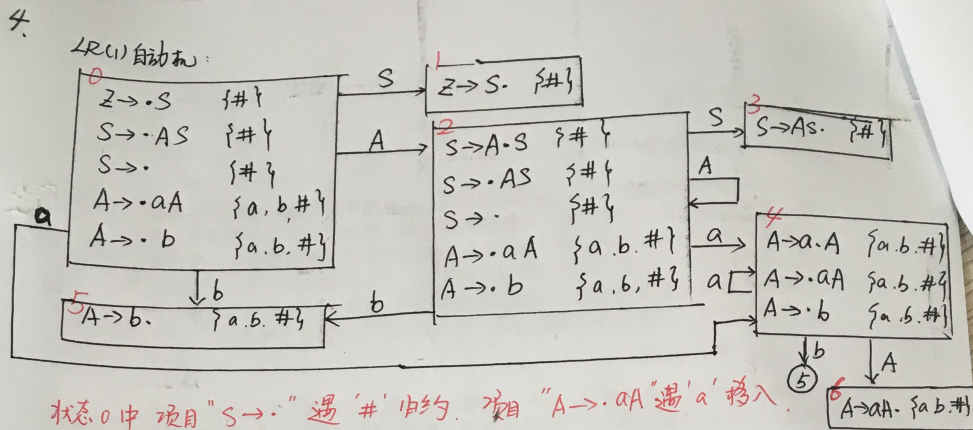 4.
LR(1)自动机:
0
Z→·S {#}
S→·AS {#}
S→· {#}
A→·aA {a,b,#}
A→·b {a.b.#}
S
1
Z→S. {#}
A
2
S→A·S {#}
S→·AS {#}
S→· {#}
A→·aA {a.b.#}
A→·b {a,b,#}
S
3
S→AS. {#}
A
a
4
A→a.A {a.b.#}
A→·aA {a.b.#}
A→·b {a.b.#}
a
a
b
5
A→b. {a.b.#}
b
b
⑤
A
6
A→aA. {a.b.#}
状态0中 项目"S→·"遇'#'归约. 项目"A→·aA"遇'a'移入.